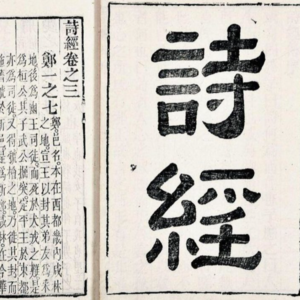 詩經
詩經卷之三
鄭一之七
鄭邑名本在西都畿內咸林
之地宣王以封其弟友為采
地後為幽王司徒而死於犬戎之難是
為桓公其子武公掘突定平王於東都
亦為司徒又得虢檜之地乃徙其封而